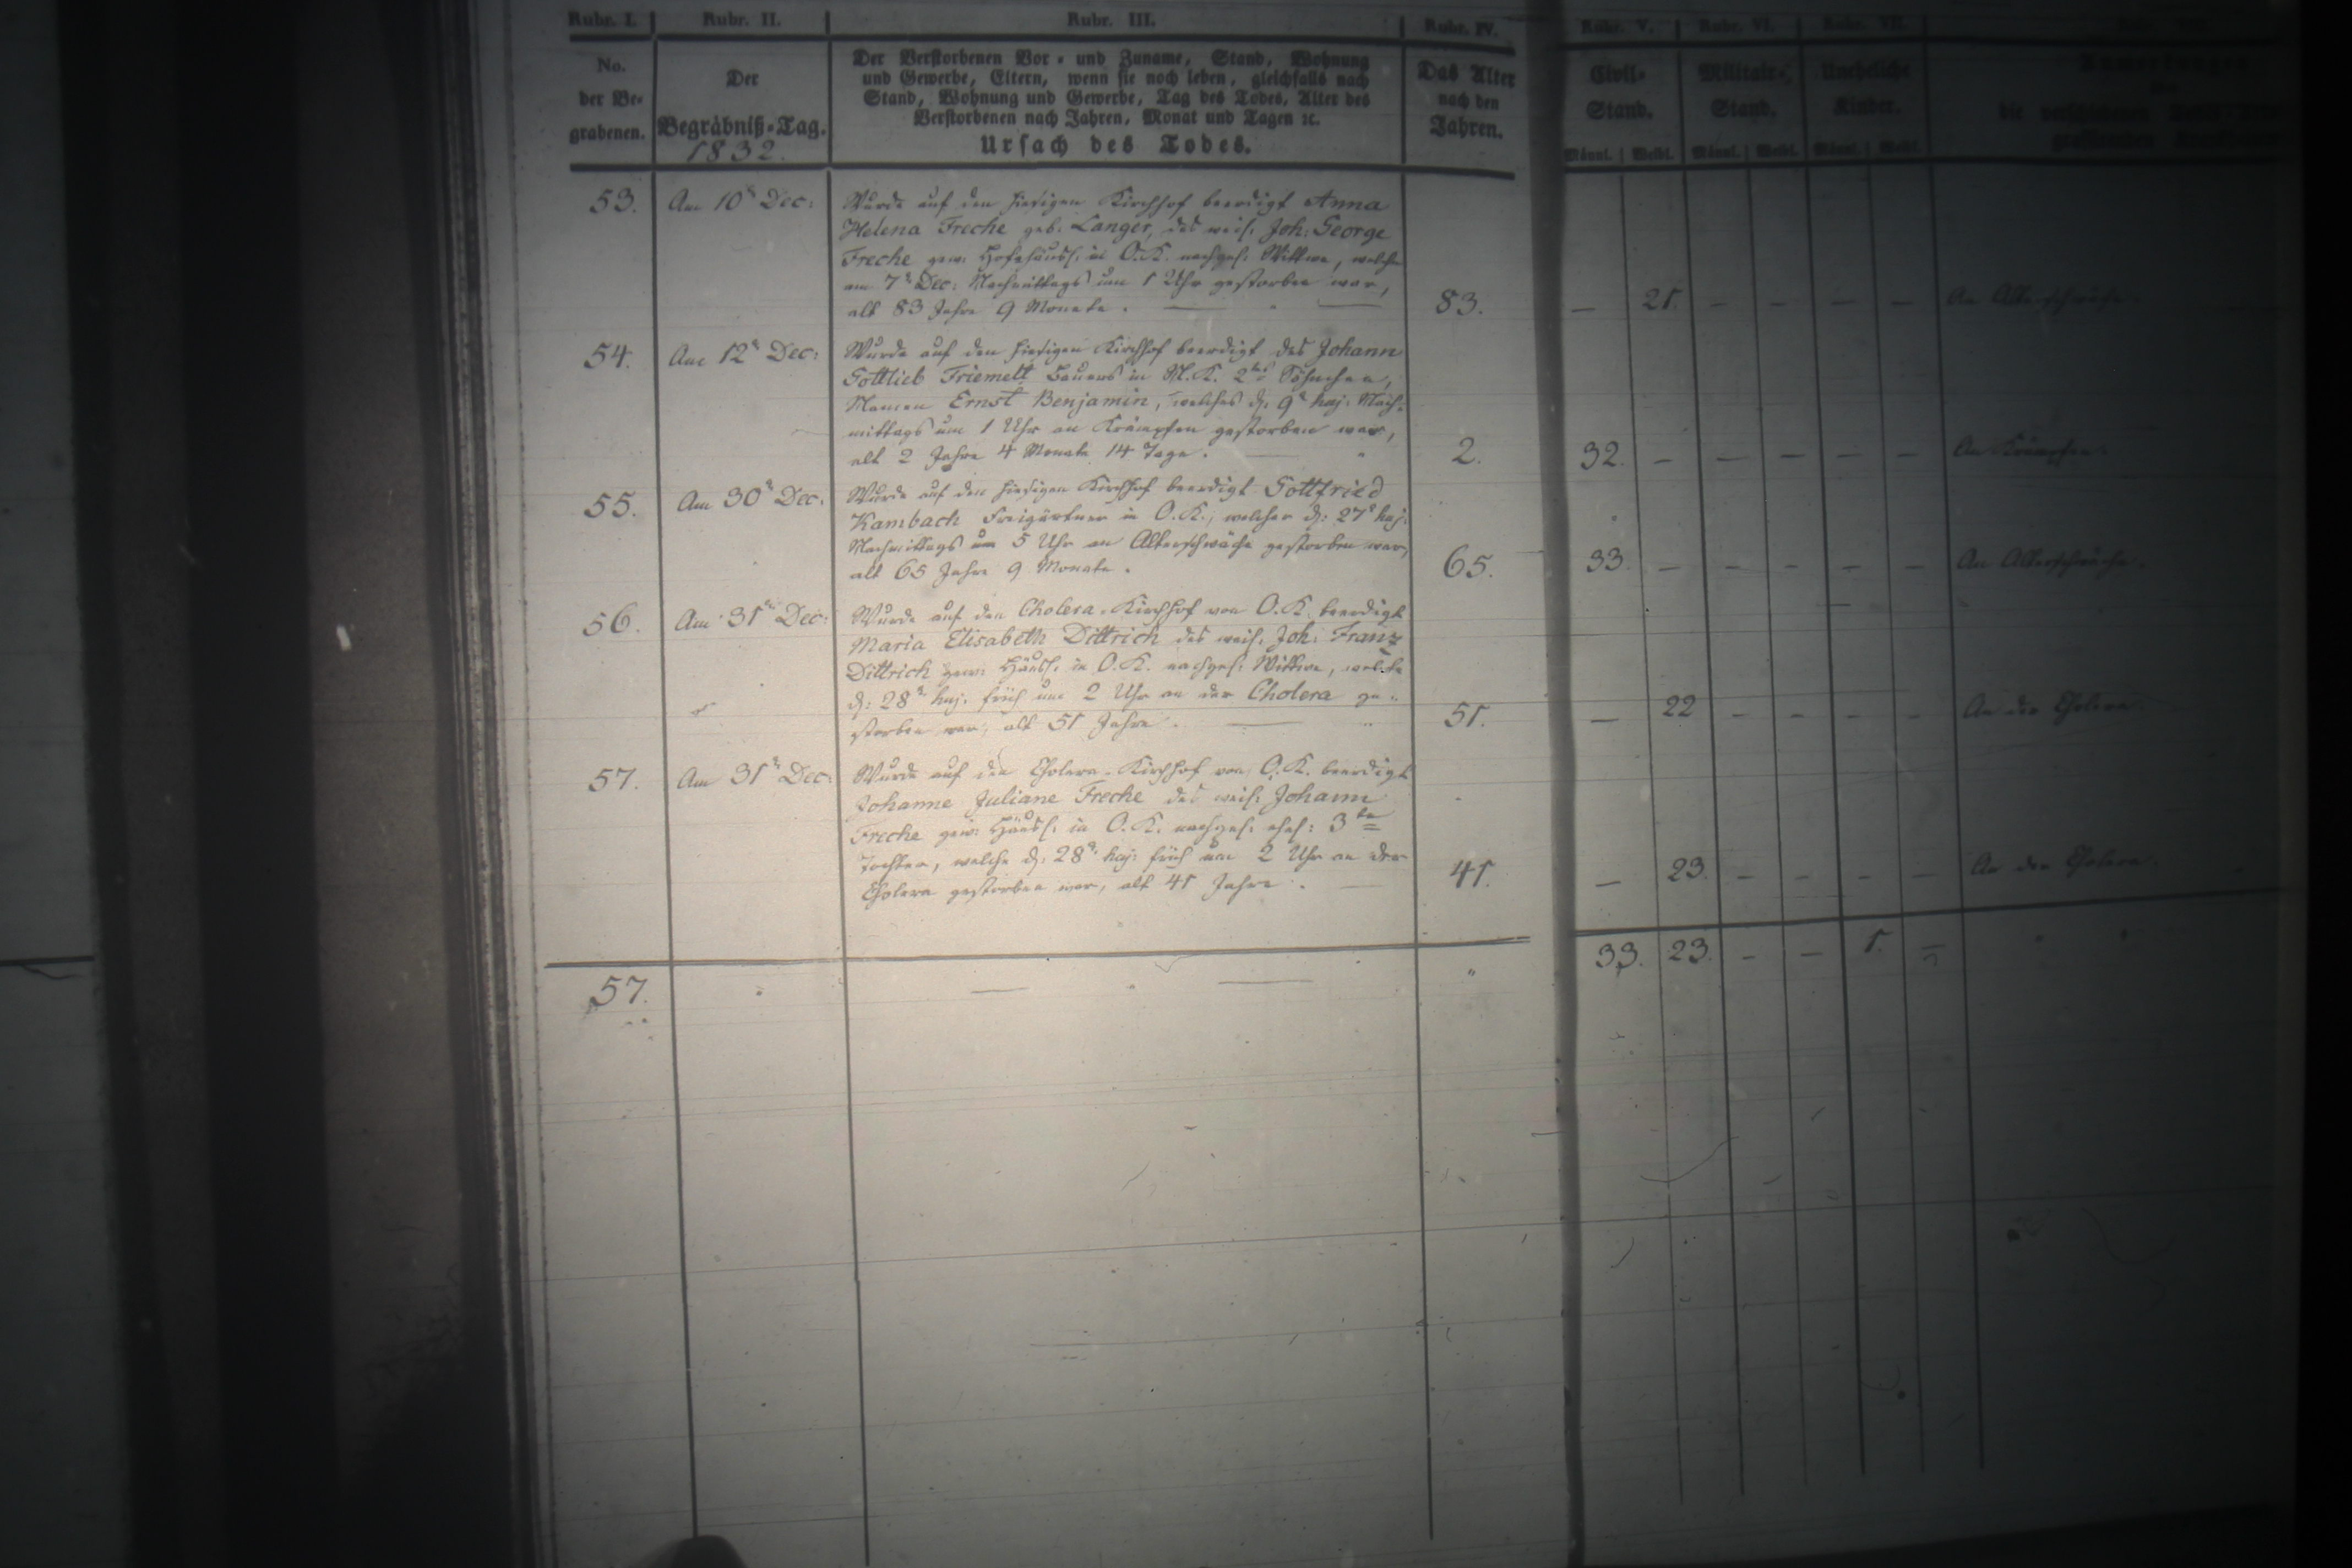 Rubr. I. Rubr. II. Rubr. III. Rubr. IV. Rubr. V. Rubr. VI. Rubr. VII.
No.
der Be=
grabenen.
Der
Begräbniß=Tag.
1832.
Der Verstorbenen Vor= und Zuname, Stand, Wohnung
und Gewerbe, Eltern, wenn sie noch leben, gleichfalls nach
Stand, Wohnung und Gewerbe, Tag des Todes, Alter des
Verstorbenen nach Jahren, Monat und Tagen ꝛc.
Ursach des Todes.
Das Alter
nach den
Jahren.
Civil=
Stand.
Männl. Weibl.
Militair=
Stand.
Männl. Weibl.
Uneheliche
Kinder.
Männl. Weibl.
53. Am 10ᵗ Dec:
Wurde auf den hiesigen Kirchhof beerdigt Anna
Helena Freche geb. Langer, des weil. Joh. George
Freche gew. Hofehäusl. in O.K. nachgel. Wittwe, welche
am 7ᵗ Dec: Nachmittags um 1 Uhr gestorben war,
alt 83 Jahre 9 Monate.
83. — 21. — — — — An Altersschwäche.
54. Am 12ᵗ Dec:
Wurde auf den hiesigen Kirchhof beerdigt des Johann
Gottlieb Friemelt Bauers in M.K. 2tes Söhnchen,
Namens Ernst Benjamin, welches d. 9ᵗ huj. Nach=
mittags um 1 Uhr an Krämpfen gestorben war,
alt 2 Jahre 4 Monate 14 Tage.
2. 32. — — — — — An Krämpfen.
55. Am 30ᵗ Dec:
Wurde auf den hiesigen Kirchhof beerdigt Gottfried
Kambach Freigärtner in O.K., welcher d: 27ᵗ huj.
Nachmittags um 5 Uhr an Altersschwäche gestorben war,
alt 65 Jahre 9 Monate.
65. 33. — — — — — An Altersschwäche.
56. Am 31ten Dec:
Wurde auf den Cholera=Kirchhof von O.K. beerdigt
Maria Elisabeth Dittrich des weil. Joh: Franz
Dittrich gew: Häusl. in O.K. nachgel: Wittwe, welche
d: 28ᵗ huj. früh um 2 Uhr an der Cholera ge=
storben war, alt 51 Jahre.
51. — 22 — — — — An der Cholera.
57. Am 31ᵗ Dec:
Wurde auf den Cholera=Kirchhof von O.K. beerdigt
Johanne Juliane Freche des weil: Johann
Freche gew: Häusl. in O.K. nachgel. ehel: 3te
Tochter, welche d: 28ᵗ huj: früh um 2 Uhr an der
Cholera gestorben war, alt 41 Jahre.
41. — 23. — — — — An der Cholera.
57. 33. 23. — — 1. —